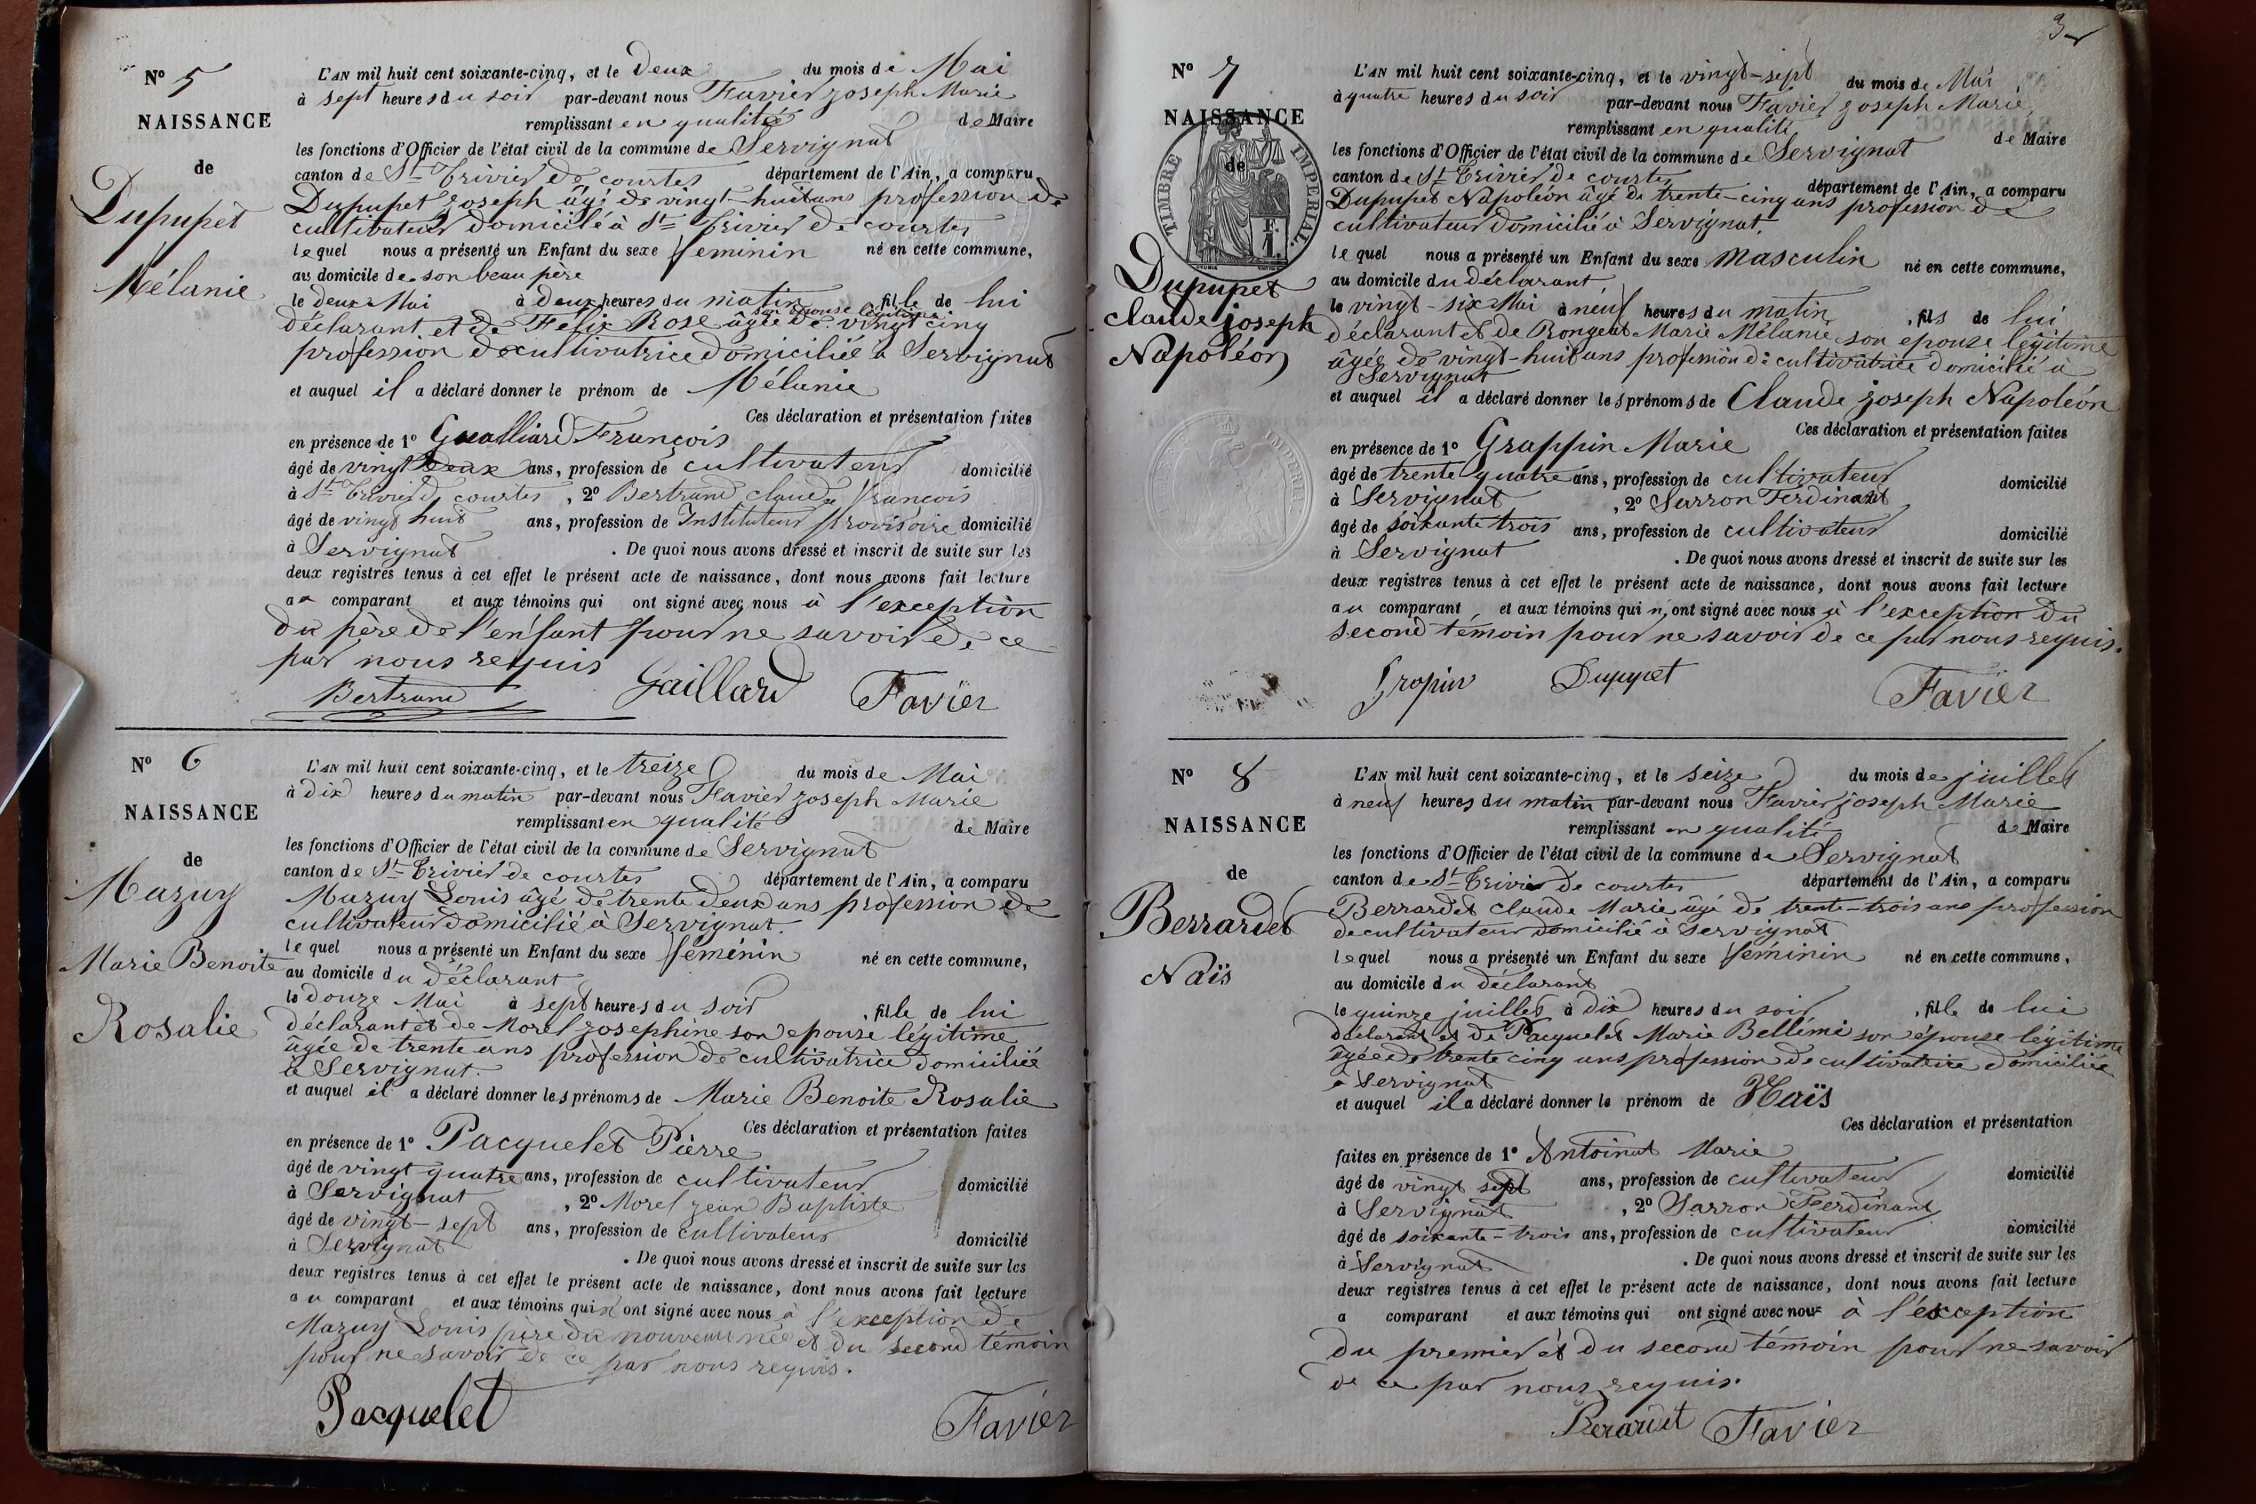 Nº 5
NAISSANCE
de
Dupupet
Mélanie
L'AN mil huit cent soixante-cinq, et le deux du mois de Mai
à sept heures du soir par-devant nous Favier joseph Marie
remplissant en qualité de Maire
les fonctions d'Officier de l'état civil de la commune de Servignat
canton de St Trivier de courtes département de l'Ain, a comparu
Dupupet joseph âgé de vingt-huit ans profession de
cultivateur domicilié à St Trivier de courtes
lequel nous a présenté un Enfant du sexe feminin né en cette commune,
au domicile de son beau père
le deux Mai à deux heures du matin, fille de lui
son épouse légitime
déclarant et de Felix Rose âgée de vingt cinq
profession de cultivatrice domiciliée à Servignat
et auquel il a déclaré donner le prénom de Mélanie
Ces déclaration et présentation faites
en présence de 1º Guailliard François
âgé de vingt deux ans, profession de cultivateur domicilié
à St Trivier de courtes, 2º Bertrand claude françois
âgé de vingt huit ans, profession de Instituteur provisoire domicilié
à Servignat. De quoi nous avons dressé et inscrit de suite sur les
deux registres tenus à cet effet le présent acte de naissance, dont nous avons fait lecture
au comparant et aux témoins qui ont signé avec nous à l'exception
du père de l'enfant pour ne savoir de ce
par nous requis
Bertrand Gaillard Favier
Nº 6
NAISSANCE
de
Mazuy
Marie Benoite
Rosalie
L'AN mil huit cent soixante-cinq, et le treize du mois de Mai
à dix heures du matin par-devant nous Favier joseph Marie
remplissant en qualité de Maire
les fonctions d'Officier de l'état civil de la commune de Servignat
canton de St Trivier de courtes département de l'Ain, a comparu
Mazuy Louis âgé de trente deux ans profession de
cultivateur domicilié à Servignat.
lequel nous a présenté un Enfant du sexe féminin né en cette commune,
au domicile du déclarant
le douze Mai à sept heures du soir, fille de lui
déclarant et de Morel josephine son epouse légitime
âgée de trente ans profession de cultivatrice domiciliée
à Servignat.
et auquel il a déclaré donner les prénoms de Marie Benoite Rosalie
Ces déclaration et présentation faites
en présence de 1º Pacquelet Pierre
âgé de vingt quatre ans, profession de cultivateur domicilié
à Servignat, 2º Morel jean Baptiste
âgé de vingt-sept ans, profession de cultivateur domicilié
à Servignat. De quoi nous avons dressé et inscrit de suite sur les
deux registres tenus à cet effet le présent acte de naissance, dont nous avons fait lecture
au comparant et aux témoins qui ont signé avec nous à l'exception de
Mazuy Louis père du nouveau né et du second témoin
pour ne savoir de ce par nous requis.
Pacquelet Favier
3
Nº 7
NAISSANCE
de
TIMBRE IMPERIAL.
F. 1.
Dupupet
claude joseph
Napoléon
L'AN mil huit cent soixante-cinq, et le vingt-sept du mois de Mai
à quatre heures du soir par-devant nous Favier joseph Marie
remplissant en qualité de Maire
les fonctions d'Officier de l'état civil de la commune de Servignat
canton de St Trivier de courtes département de l'Ain, a comparu
Dupupet Napoléon âgé de trente-cinq ans profession de
cultivateur domicilié à Servignat.
lequel nous a présenté un Enfant du sexe masculin né en cette commune,
au domicile du déclarant
le vingt-six Mai à neuf heures du matin, fils de lui
déclarant et de Rongeat Marie Mélanie son épouse légitime
âgée de vingt-huit ans profession de cultivatrice domicilié à
Servignat
et auquel il a déclaré donner les prénoms de Claude joseph Napoléon
Ces déclaration et présentation faites
en présence de 1º Grappin Marie
âgé de trente quatre ans, profession de cultivateur domicilié
à Servignat, 2º Sarron Ferdinant
âgé de soixante trois ans, profession de cultivateur domicilié
à Servignat. De quoi nous avons dressé et inscrit de suite sur les
deux registres tenus à cet effet le présent acte de naissance, dont nous avons fait lecture
au comparant, et aux témoins qui n'ont signé avec nous à l'exception du
second témoin pour ne savoir de ce par nous requis.
Gropin Dupupet Favier
Nº 8
NAISSANCE
de
Berrardet
Naïs
L'AN mil huit cent soixante-cinq, et le seize du mois de juillet
à neuf heures du matin par-devant nous Favier joseph Marie
remplissant en qualité de Maire
les fonctions d'Officier de l'état civil de la commune de Servignat
canton de St Trivier de courtes département de l'Ain, a comparu
Berrardet claude Marie âgé de trente-trois ans profession
de cultivateur domicilié à Servignat
lequel nous a présenté un Enfant du sexe féminin né en cette commune,
au domicile du déclarant
le quinze juillet à dix heures du soir, fille de lui
déclarant et de Pacquelet Marie Bellémie son épouse légitime
âgée de trente cinq ans profession de cultivatrice domiciliée
à Servignat
et auquel il a déclaré donner le prénom de Naïs
Ces déclaration et présentation
faites en présence de 1º Antoinat Marie
âgé de vingt sept ans, profession de cultivateur domicilié
à Servignat, 2º Sarron Ferdinant
âgé de soixante-trois ans, profession de cultivateur domicilié
à Servignat. De quoi nous avons dressé et inscrit de suite sur les
deux registres tenus à cet effet le présent acte de naissance, dont nous avons fait lecture
a comparant et aux témoins qui ont signé avec nous à l'exception
du premier et du second témoin pour ne savoir
de ce par nous requis.
Berardet Favier